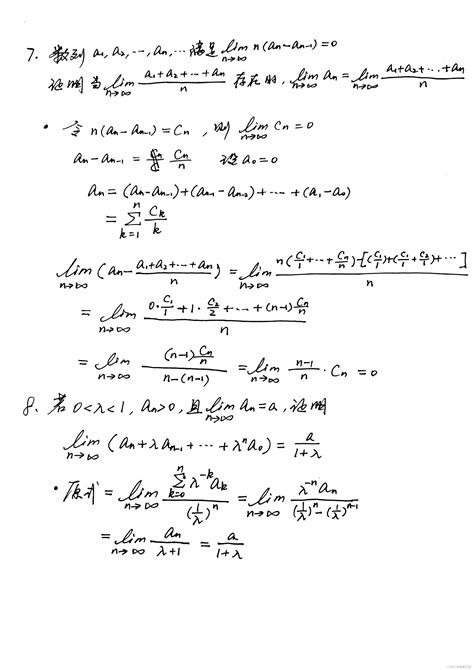 7. 数列 a₁, a₂, ..., aₙ, ... 满足 lim_{n→∞} n(aₙ-aₙ₋₁)=0
证明当 lim_{n→∞} (a₁+a₂+...+aₙ)/n 存在时, lim_{n→∞} aₙ = lim_{n→∞} (a₁+a₂+...+aₙ)/n
• 令 n(aₙ-aₙ₋₁)=Cₙ, 则 lim_{n→∞} Cₙ=0
aₙ-aₙ₋₁ = Cₙ/n 设 a₀=0
aₙ = (aₙ-aₙ₋₁)+(aₙ₋₁-aₙ₋₂)+...+(a₁-a₀)
= ∑_{k=1}^{n} Cₖ/k
lim_{n→∞} (aₙ - (a₁+a₂+...+aₙ)/n) = lim_{n→∞} (n(C₁/1+...+Cₙ/n)-[(C₁/1)+(C₁/1+C₂/1)+...])/n
= lim_{n→∞} (0·C₁/1+1·C₂/2+...+(n-1)Cₙ/n)/n
= lim_{n→∞} ((n-1)Cₙ/n)/(n-(n-1)) = lim_{n→∞} (n-1)/n · Cₙ = 0
8. 若 0<λ<1, aₙ>0, 且 lim_{n→∞} aₙ=a, 证明
lim_{n→∞} (aₙ+λaₙ₋₁+...+λⁿa₀) = a/(1+λ)
• 原式 = lim_{n→∞} (∑_{k=0}^{n} λ⁻ᵏaₖ)/(1/λ)ⁿ = lim_{n→∞} (λ⁻ⁿaₙ)/((1/λ)ⁿ-(1/λ)ⁿ⁻¹)
= lim_{n→∞} aₙ/(λ+1) = a/(1+λ)